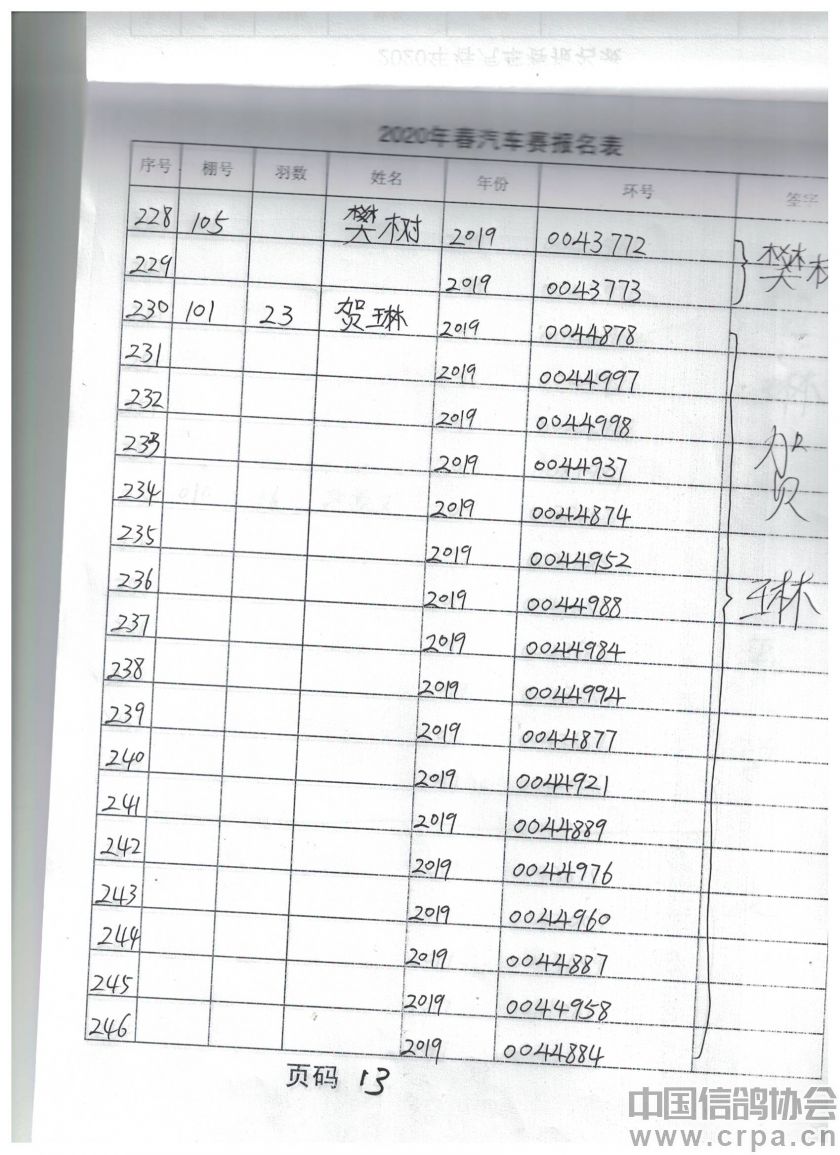 2020年春汽车赛报名表
序号 棚号 羽数 姓名 年份 环号 签字
228 105 樊树 2019 0043772 樊树
229 2019 0043773
230 101 23 贺琳 2019 0044878 贺琳
231 2019 0044997
232 2019 0044998
233 2019 0044937
234 2019 0044874
235 2019 0044952
236 2019 0044988
237 2019 0044984
238 2019 0044994
239 2019 0044877
240 2019 0044921
241 2019 0044889
242 2019 0044976
243 2019 0044960
244 2019 0044887
245 2019 0044958
246 2019 0044884
页码 13
中国信鸽协会
www.crpa.cn